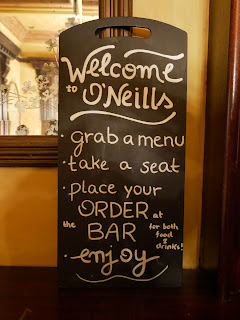 Welcome
to O'Neills
· grab a menu
· take a seat
· place your
ORDER at
the BAR for both food & drinks!
· enjoy